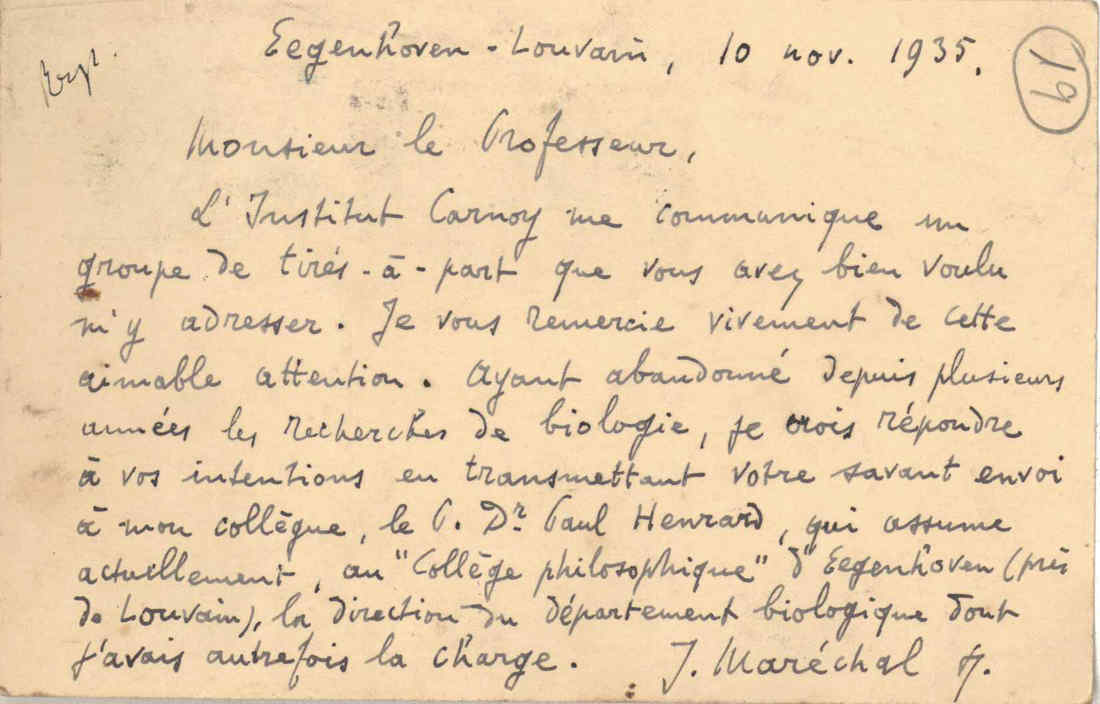 Eegenhoven - Louvain, 10 nov. 1935.
19
Monsieur le Professeur,
L'Institut Carnoy me communique un
groupe de tirés-à-part que vous avez bien voulu
m'y adresser. Je vous remercie vivement de cette
aimable attention. Ayant abandonné depuis plusieurs
années les recherches de biologie, je crois répondre
à vos intentions en transmettant votre savant envoi
à mon collègue, le P. Dr Paul Henrard, qui assume
actuellement, au "Collège philosophique" d'Eegenhoven (près
de Louvain), la direction du département biologique dont
j'avais autrefois la charge. J. Maréchal